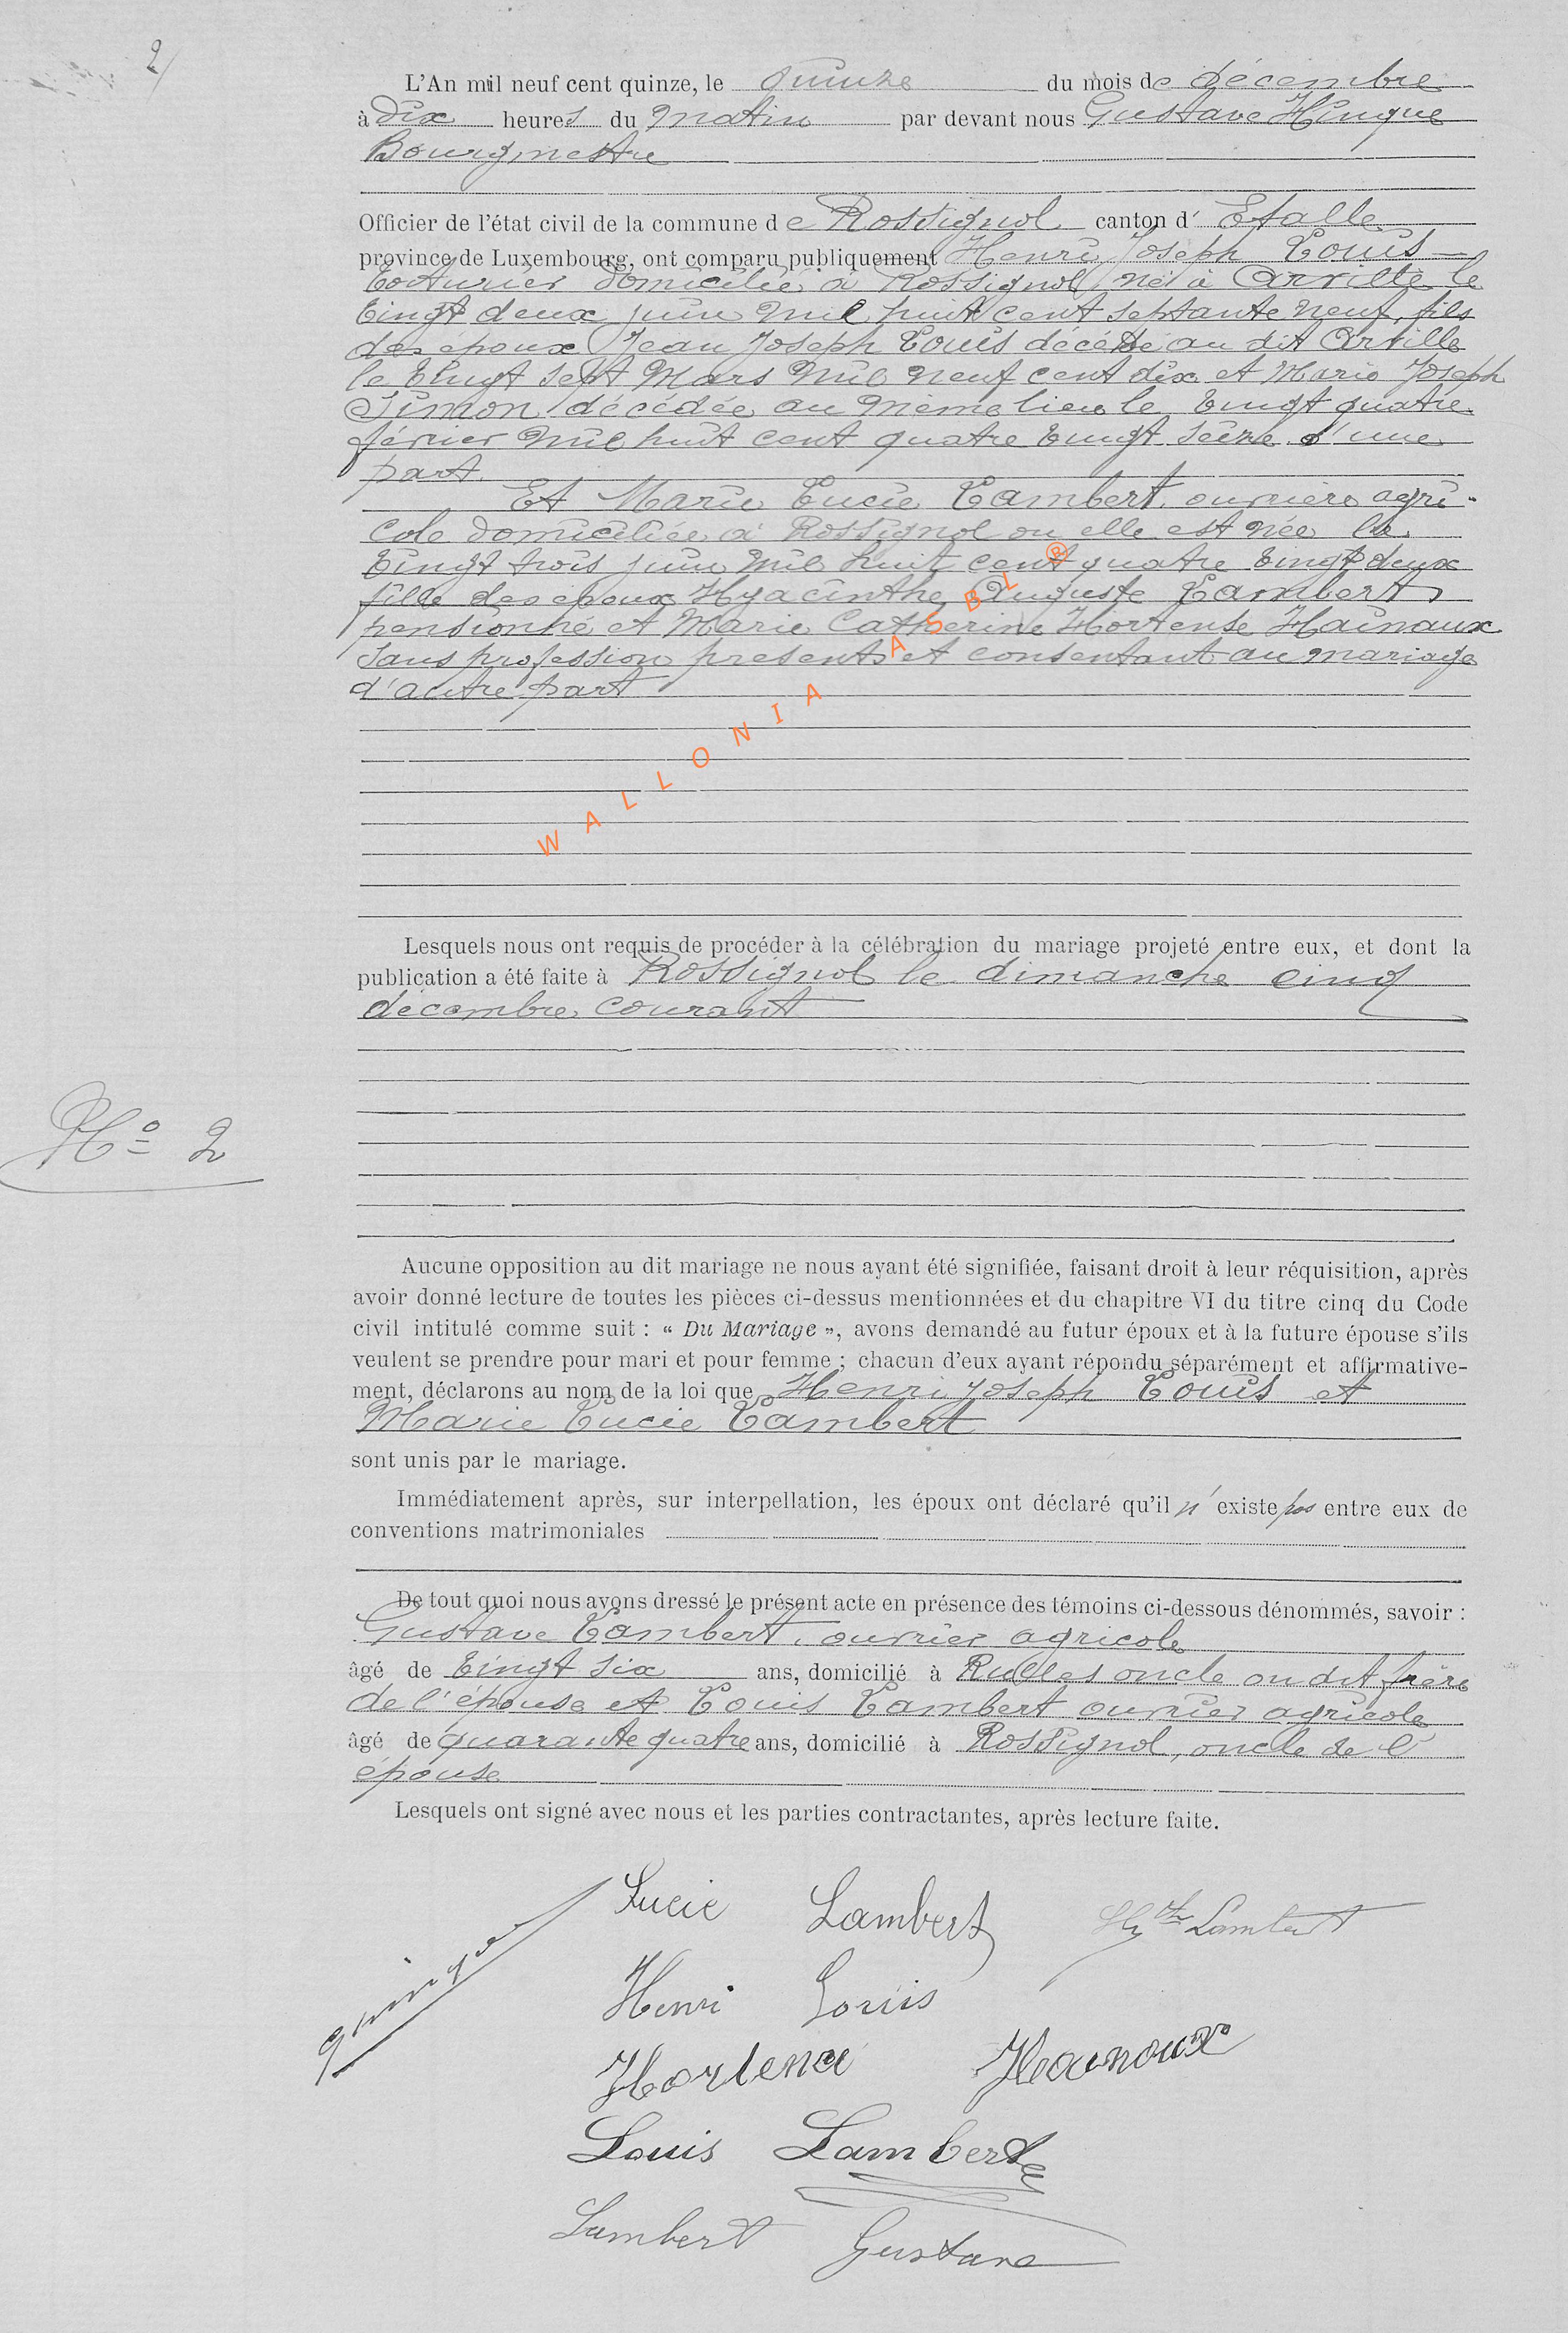 2
L'An mil neuf cent quinze, le quinze du mois de décembre
à Dix heures du matin par devant nous Gustave Hinque
Bourgmestre
Officier de l'état civil de la commune de Rossignol canton d' Etalle
province de Luxembourg, ont comparu publiquement Henri Joseph Louis
domicilié à Rossignol, né à Arville le
vingt deux juin mil huit cent septante neuf, fils
des epoux Jean Joseph Louis décédé au dit Arville
le vingt sept Mars mil neuf cent dix et Marie Joseph
Simon décédée au même lieu le vingt quatre
février mil huit cent quatre vingt seize d'une
part.
Et Marie Lucie Lambert, ouvrière agri-
cole domiciliée à Rossignol ou elle est née le
vingt trois juin mil huit cent quatre vingt deux
fille des epoux Hyacinthe Auguste Lambert
pensionné et Marie Catherine Hortense Hainaux
sans profession presents et consentant au mariage
d'autre part
WALLONIA ASBL ®
Lesquels nous ont requis de procéder à la célébration du mariage projeté entre eux, et dont la
publication a été faite à Rossignol le dimanche cinq
décembre courant
No 2
Aucune opposition au dit mariage ne nous ayant été signifiée, faisant droit à leur réquisition, après
avoir donné lecture de toutes les pièces ci-dessus mentionnées et du chapitre VI du titre cinq du Code
civil intitulé comme suit : « Du Mariage », avons demandé au futur époux et à la future épouse s'ils
veulent se prendre pour mari et pour femme ; chacun d'eux ayant répondu séparément et affirmative-
ment, déclarons au nom de la loi que Henri Joseph Louis et
Marie Lucie Lambert
sont unis par le mariage.
Immédiatement après, sur interpellation, les époux ont déclaré qu'il n'existe pas entre eux de
conventions matrimoniales
De tout quoi nous avons dressé le présent acte en présence des témoins ci-dessous dénommés, savoir :
Gustave Lambert, ouvrier agricole
âgé de vingt six ans, domicilié à Rulles oncle on dit frère
de l'épouse et Louis Lambert ouvrier agricole
âgé de quarante quatre ans, domicilié à Rossignol, oncle de l'
épouse
Lesquels ont signé avec nous et les parties contractantes, après lecture faite.
Lucie Lambert Hythe Lambert
Henri Louis
Hortence Hainoux
Louis Lambert
Lambert Gustave